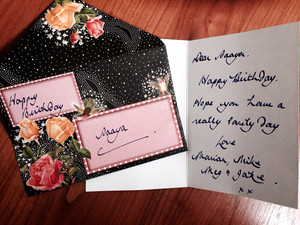 Happy
Birthday
Maya
Dear Maya.
Happy Birthday.
Hope you have a
really lovely Day
Love
Marian, Mike
Meg & Jake.
x x